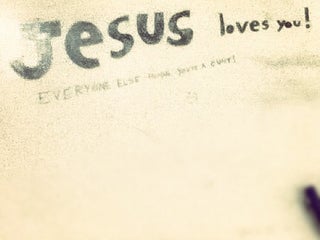 Jesus loves you!
EVERYONE ELSE THINKS YOU'RE A CUNT!